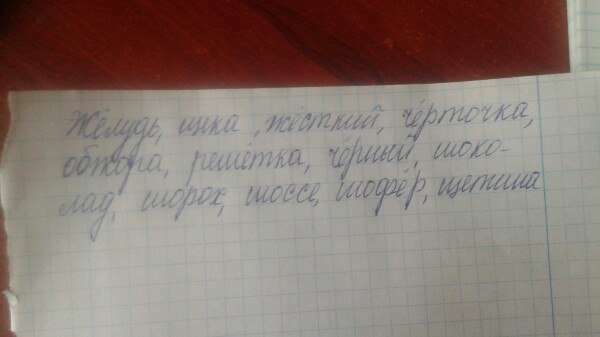 Жёлудь, жёсткий, чёрточка,
обжора, решётка, чёрный, шоко-
лад, шорох, шоссе, шофёр, щетина